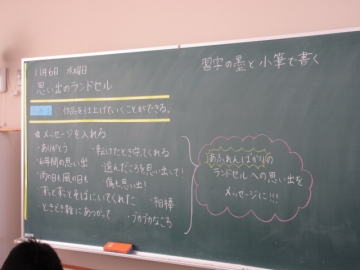 11月6日 水曜日
習字の墨と小筆で書く
思い出のランドセル
作品を仕上げていくことができる。
☆メッセージを入れる
・ありがとう ・転んだとき守ってくれる
・6年間の思い出 ・遊んだころを思い出して!
・雨の日も風の日も 傷も思い出!
・ずっとずっとそばにいてくれた ・相棒
・ときどき雑にあつかって ・ブカブカなころ
あふれんばかりの
ランドセルへの思い出を
メッセージに!!!